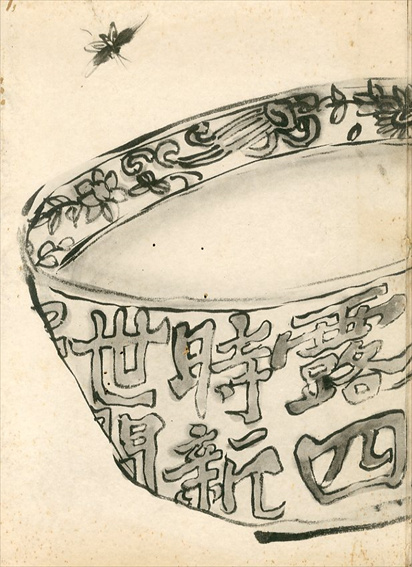 露四
時新
世間